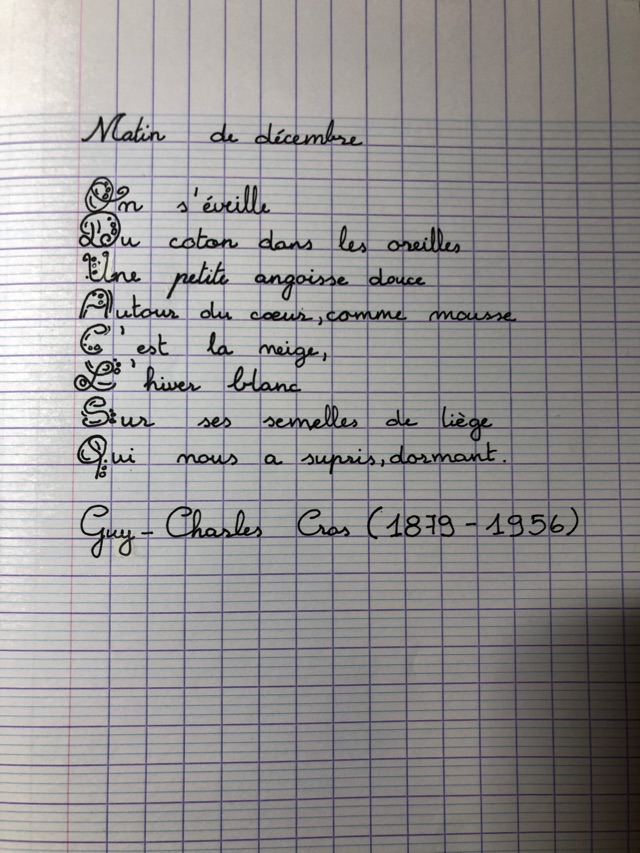 Matin de décembre
On s'éveille
Du coton dans les oreilles
Une petite angoisse douce
Autour du coeur, comme mousse
C'est la neige,
L'hiver blanc
Sur ses semelles de liège
Qui nous a supris, dormant.
Guy-Charles Cros (1879-1956)